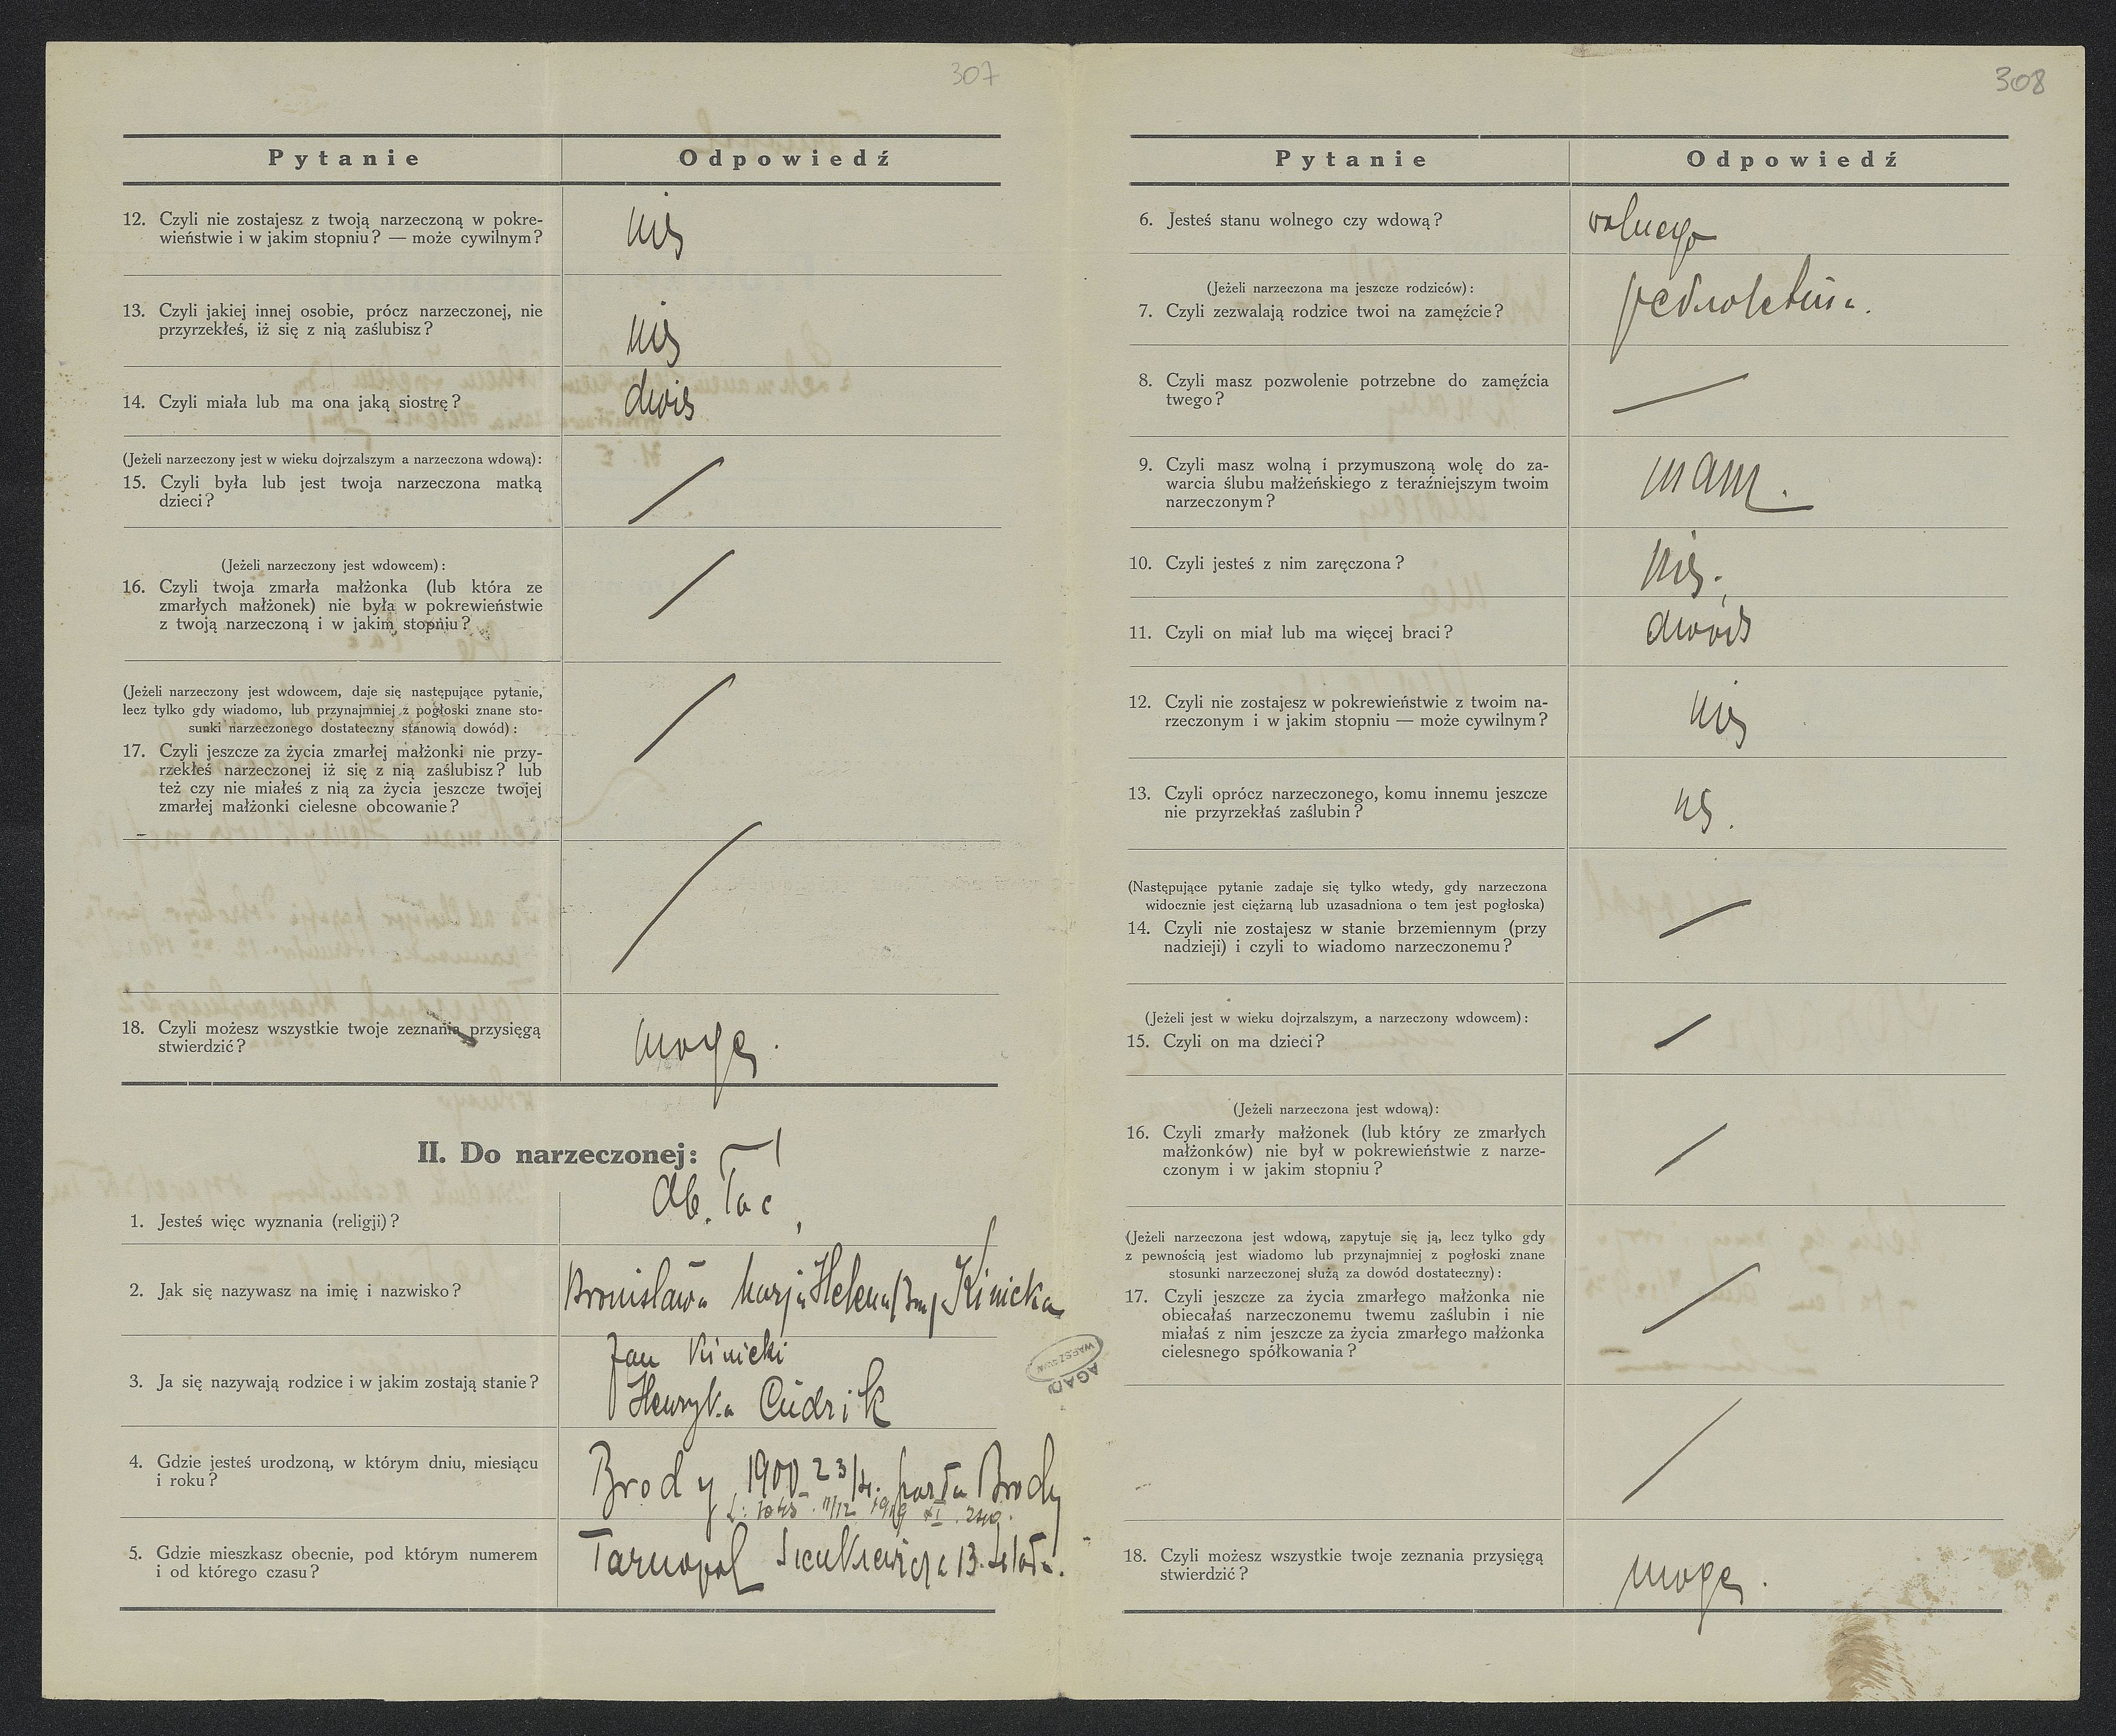 307
Pytanie Odpowiedź
12. Czyli nie zostajesz z twoją narzeczoną w pokre-
wieństwie i w jakim stopniu? — może cywilnym?
nie
13. Czyli jakiej innej osobie, prócz narzeczonej, nie
przyrzekłeś, iż się z nią zaślubisz?
nie
14. Czyli miała lub ma ona jaką siostrę?
dwie
(Jeżeli narzeczony jest w wieku dojrzalszym a narzeczona wdową):
15. Czyli była lub jest twoja narzeczona matką
dzieci?
(Jeżeli narzeczony jest wdowcem):
16. Czyli twoja zmarła małżonka (lub która ze
zmarłych małżonek) nie była w pokrewieństwie
z twoją narzeczoną i w jakim stopniu?
(Jeżeli narzeczony jest wdowcem, daje się następujące pytanie,
lecz tylko gdy wiadomo, lub przynajmniej z pogłoski znane sto-
sunki narzeczonego dostateczny stanowią dowód):
17. Czyli jeszcze za życia zmarłej małżonki nie przy-
rzekłeś narzeczonej iż się z nią zaślubisz? lub
też czy nie miałeś z nią za życia jeszcze twojej
zmarłej małżonki cielesne obcowanie?
18. Czyli możesz wszystkie twoje zeznania przysięgą
stwierdzić?
mogę.
II. Do narzeczonej:
1. Jesteś więc wyznania (religji)?
Ob. łac
2. Jak się nazywasz na imię i nazwisko?
Bronisława Marja Helena Kinicka
3. Ja się nazywają rodzice i w jakim zostają stanie?
Jan Kinicki
Henryka Cudzik
4. Gdzie jesteś urodzoną, w którym dniu, miesiącu
i roku?
Brody 1900 23/4. Brody
5. Gdzie mieszkasz obecnie, pod którym numerem
i od którego czasu?
Tarnopol Sienkiewicza 13.
AGAD
WARSZAWA
308
Pytanie Odpowiedź
6. Jesteś stanu wolnego czy wdową?
wolnego
(Jeżeli narzeczona ma jeszcze rodziców):
7. Czyli zezwalają rodzice twoi na zamęźcie?
pełnoletnia.
8. Czyli masz pozwolenie potrzebne do zamęźcia
twego?
9. Czyli masz wolną i przymuszoną wolę do za-
warcia ślubu małżeńskiego z teraźniejszym twoim
narzeczonym?
mam.
10. Czyli jesteś z nim zaręczona?
nie.
11. Czyli on miał lub ma więcej braci?
dwóch
12. Czyli nie zostajesz w pokrewieństwie z twoim na-
rzeczonym i w jakim stopniu — może cywilnym?
nie
13. Czyli oprócz narzeczonego, komu innemu jeszcze
nie przyrzekłaś zaślubin?
nie.
(Następujące pytanie zadaje się tylko wtedy, gdy narzeczona
widocznie jest ciężarną lub uzasadniona o tem jest pogłoska)
14. Czyli nie zostajesz w stanie brzemiennym (przy
nadzieji) i czyli to wiadomo narzeczonemu?
(Jeżeli jest w wieku dojrzalszym, a narzeczony wdowcem):
15. Czyli on ma dzieci?
(Jeżeli narzeczona jest wdową):
16. Czyli zmarły małżonek (lub który ze zmarłych
małżonków) nie był w pokrewieństwie z narze-
czonym i w jakim stopniu?
(Jeżeli narzeczona jest wdową, zapytuje się ją, lecz tylko gdy
z pewnością jest wiadomo lub przynajmniej z pogłoski znane
stosunki narzeczonej służą za dowód dostateczny):
17. Czyli jeszcze za życia zmarłego małżonka nie
obiecałaś narzeczonemu twemu zaślubin i nie
miałaś z nim jeszcze za życia zmarłego małżonka
cielesnego spółkowania?
18. Czyli możesz wszystkie twoje zeznania przysięgą
stwierdzić?
mogę.